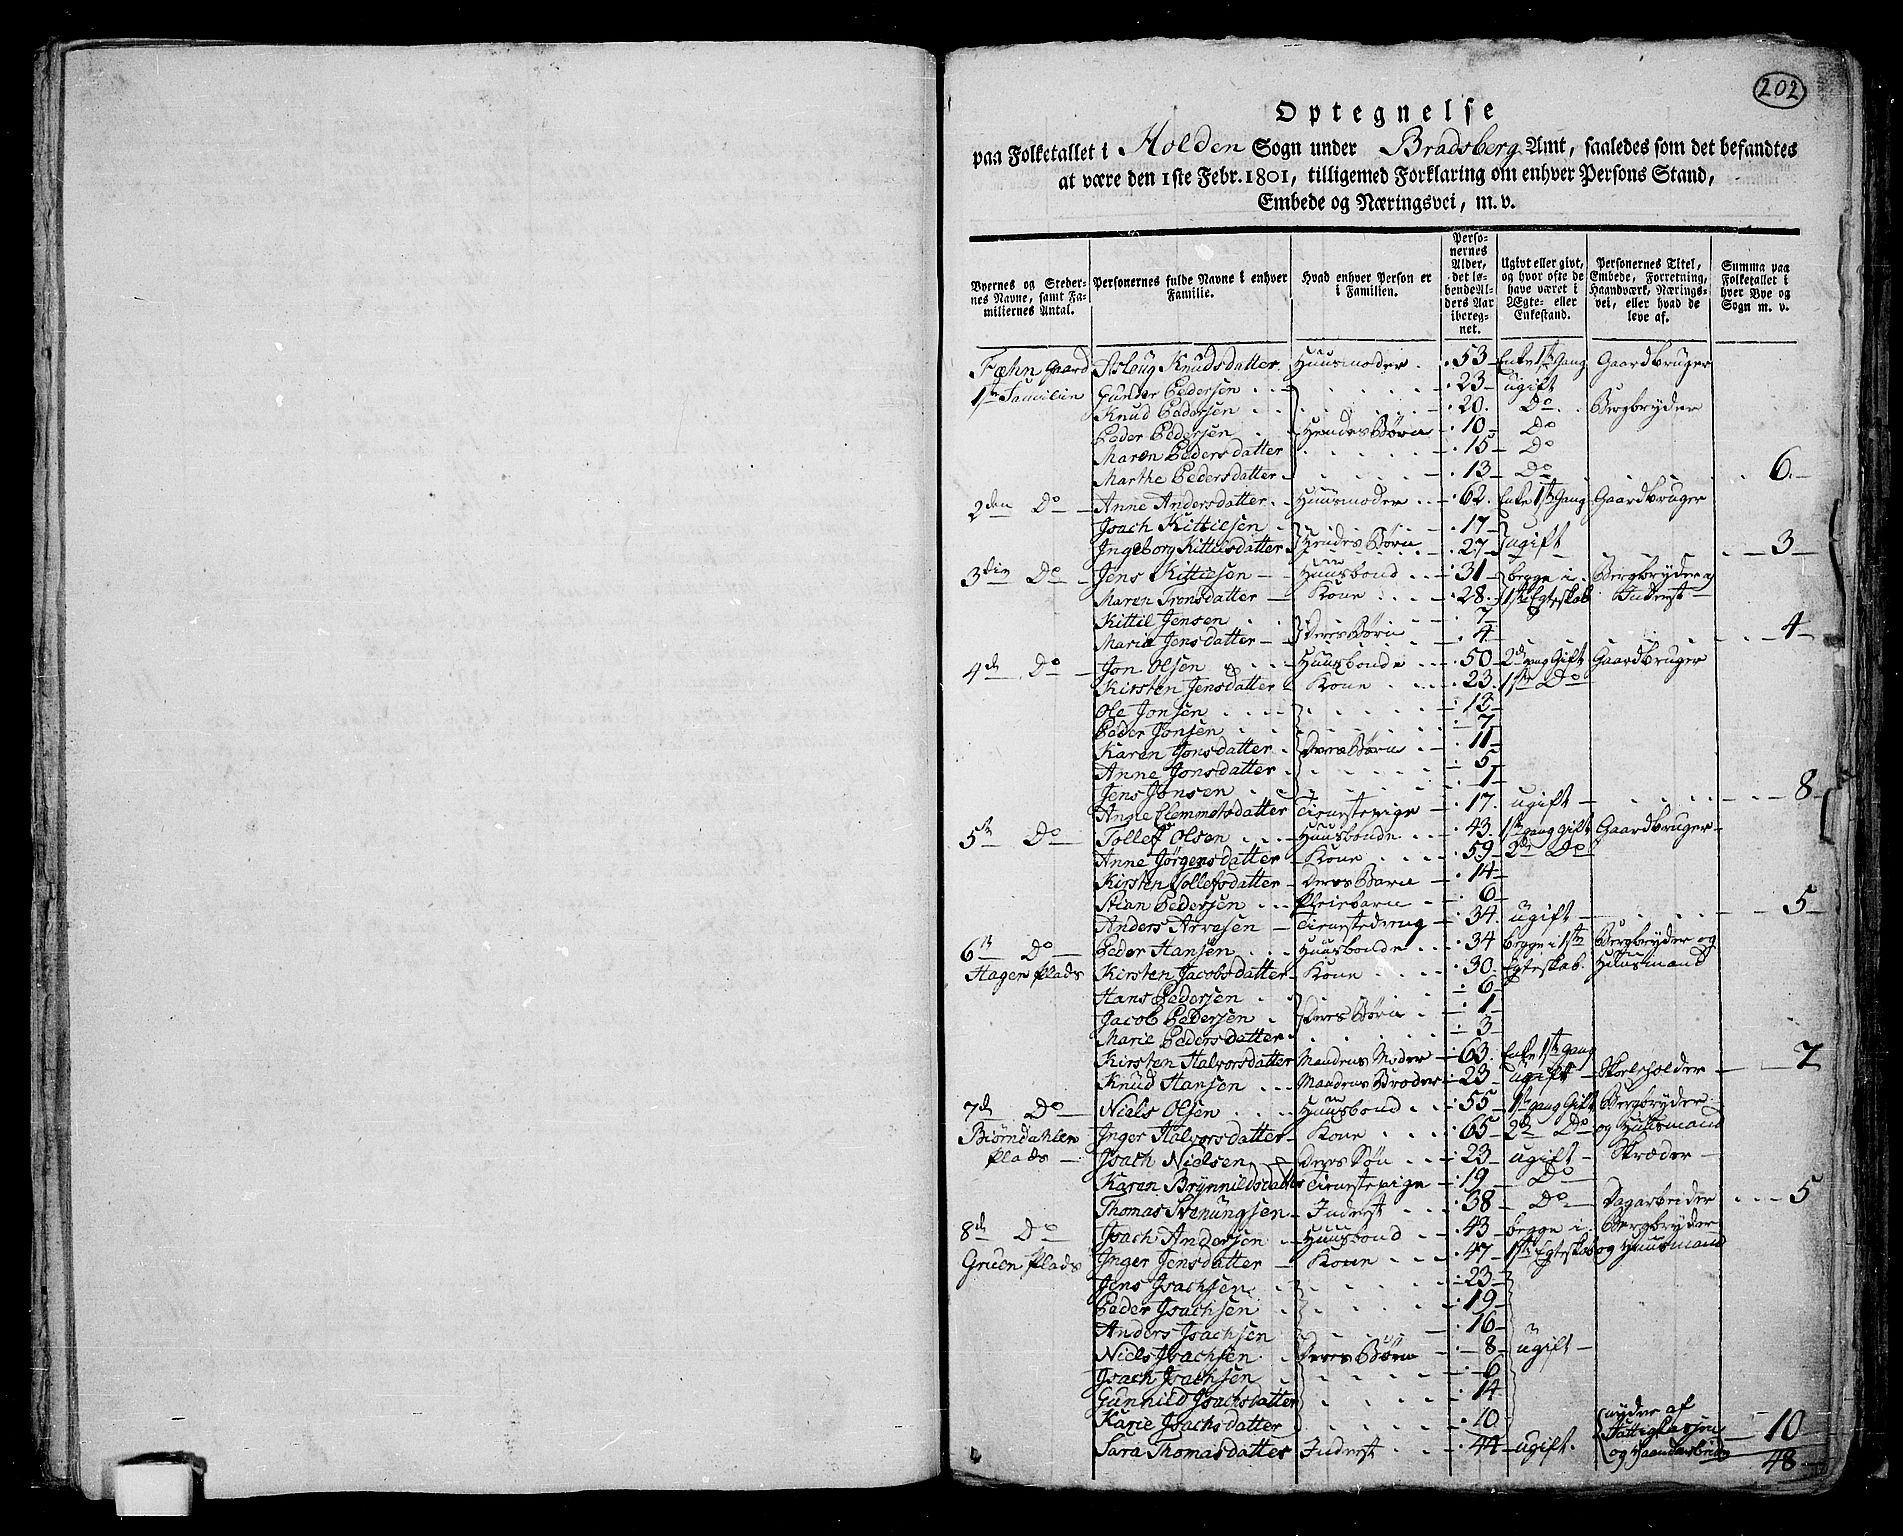 202
Optegnelse
paa Folketallet i Holden Sogn under Bradsberg Amt, saaledes som det befandtes
at være den 1ste Febr. 1801, tilligemed Forklaring om enhver Persons Stand,
Embede og Næringsvei, m. v.
Byernes og Stedernes Navne, samt Familiernes Antal. | Personernes fulde Navne i enhver Familie. | Hvad enhver Person er i Familien. | Personernes Alder, det løbende Alders Aar iberegnet. | Ugivt eller givt, og hvor ofte de have været i Ægte- eller Enkestand. | Personernes Titel, Embede, Forretning, Haandværk, Næringsvei, eller hvad de leve af. | Summa paa Folketallet i hver Bye og Sogn m. v.
Fæhn Gaard Asloug Knudsdatter Huusmoder 53 Enke 1ste Gang Gaardbruger
1ste Familien Gunder Pedersen 23 ugift
Knud Pedersen 20 Do Bergbryder
Peder Pedersen Hendes Børn 10 Do
Maren Pedersdatter 15 Do
Marthe Pedersdatter 13 Do 6
2den Do Anne Andersdatter Huusmoder 62 Enke 1ste Gang Gaardbruger
Isach Kittilsen 17
Ingeborg Kittilsdatter Hendes Børn 27 ugift 3
3die Do Jens Kittilsen Huusbond 31 begge i Bergbryder og
Maren Tronsdatter Kone 28 1ste Egteskab Inderst
Kittil Jensen 7
Marie Jensdatter Deres Børn 4 4
4de Do Jon Olsen Huusbonde 50 2den gang Gift Gaardbruger
Kirsten Jensdatter Kone 23 1ste Do
Ole Jonsen 13
Peder Jonsen 7
Karen Jonsdatter Deres Børn 11
Anne Jonsdatter 5
Jens Jonsen 1
Anne Clemmetsdatter Tienestepige 17 ugift 8
5te Do Tollef Olsen Huusbonde 43 1ste gang Gift Gaardbruger
Anne Jørgensdatter Kone 59 2de Do
Kirsten Tollefsdatter Deres Barn 14
Stian Pedersen Pleiebarn 6
Anders Arvesen Tienestedreng 34 ugift 5
6te Do Peder Hansen Huusbonde 34 begge i 1ste Bergbryder og
Hagen Plads Kirsten Jacobsdatter Kone 30 Egteskab Huusmand
Hans Pedersen 6
Jacob Pedersen Deres Børn 1
Marie Pedersdatter 3
Kirsten Halvorsdatter Mandens Moder 63 Enke 1ste Gang
Knud Hansen Mandens Broder 23 ugift Skoleholder 7
7de Do Niels Olsen Huusbond 55 1ste gang Gift Bergbryder
Biørndahlen Inger Halvorsdatter Kone 65 2de Do og Huusmand
Plads Isach Nielsen Deres Søn 23 ugift Skræder
Karen Brynnildsdatter Tienestepige 19 Do
Thomas Svenungsen Inderst 38 Do Dagarbeider 5
8de Do Isach Andersen Huusbond 43 begge i Bergbryder
Gruen Plads Inger Jensdatter Kone 47 1ste Egteskab og Huusmand
Jens Isachsen 23
Peder Isachsen 19
Anders Isachsen 16
Niels Isachsen Deres Børn 8 ugift
Isach Isachsen 6
Gunnild Isachsdatter 14
Karie Isachsdatter 10 nyder af
Sara Thomasdatter Inderst 44 ugift Fattigkassen og Haandarbeide 10
48